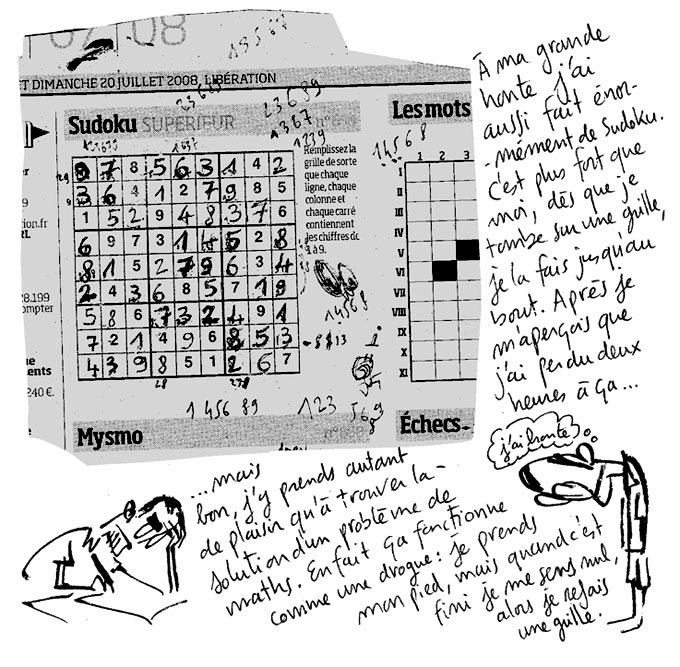 08
15567
ET DIMANCHE 20 JUILLET 2008, LIBÉRATION
23689
1367
1239
Sudoku SUPERIEUR
Les mots
14568
9 7 8 5 6 3 1 4 2
3 6 4 1 2 7 9 8 5
1 5 2 9 4 8 3 7 6
6 9 7 3 1 4 5 2 8
8 1 5 2 7 9 6 3 4
2 4 3 6 8 5 7 1 9
5 8 6 7 3 2 4 9 1
7 2 1 4 9 6 8 5 3
4 3 9 8 5 1 2 6 7
Remplissez la
grille de sorte
que chaque
ligne, chaque
colonne et
chaque carré
contiennent
les chiffres de
1 à 9.
14568
1 2 3
I
II
III
IV
V
VI
VII
VIII
IX
X
XI
28.199
ompter
ents
240 €.
1 456 89
123
569
Mysmo
Échecs
À ma grande
honte j'ai
aussi fait énor-
-mément de Sudoku.
c'est plus fort que
moi, dès que je
tombe sur une grille,
je la fais jusqu'au
bout. Après je
m'aperçois que
j'ai perdu deux
heures à ça...
j'ai honte
...mais
bon, j'y prends autant
de plaisir qu'à trouver la-
solution d'un problème de
maths. En fait ça fonctionne
comme une drogue : je prends
mon pied, mais quand c'est
fini je me sens nul,
alors je refais
une grille.